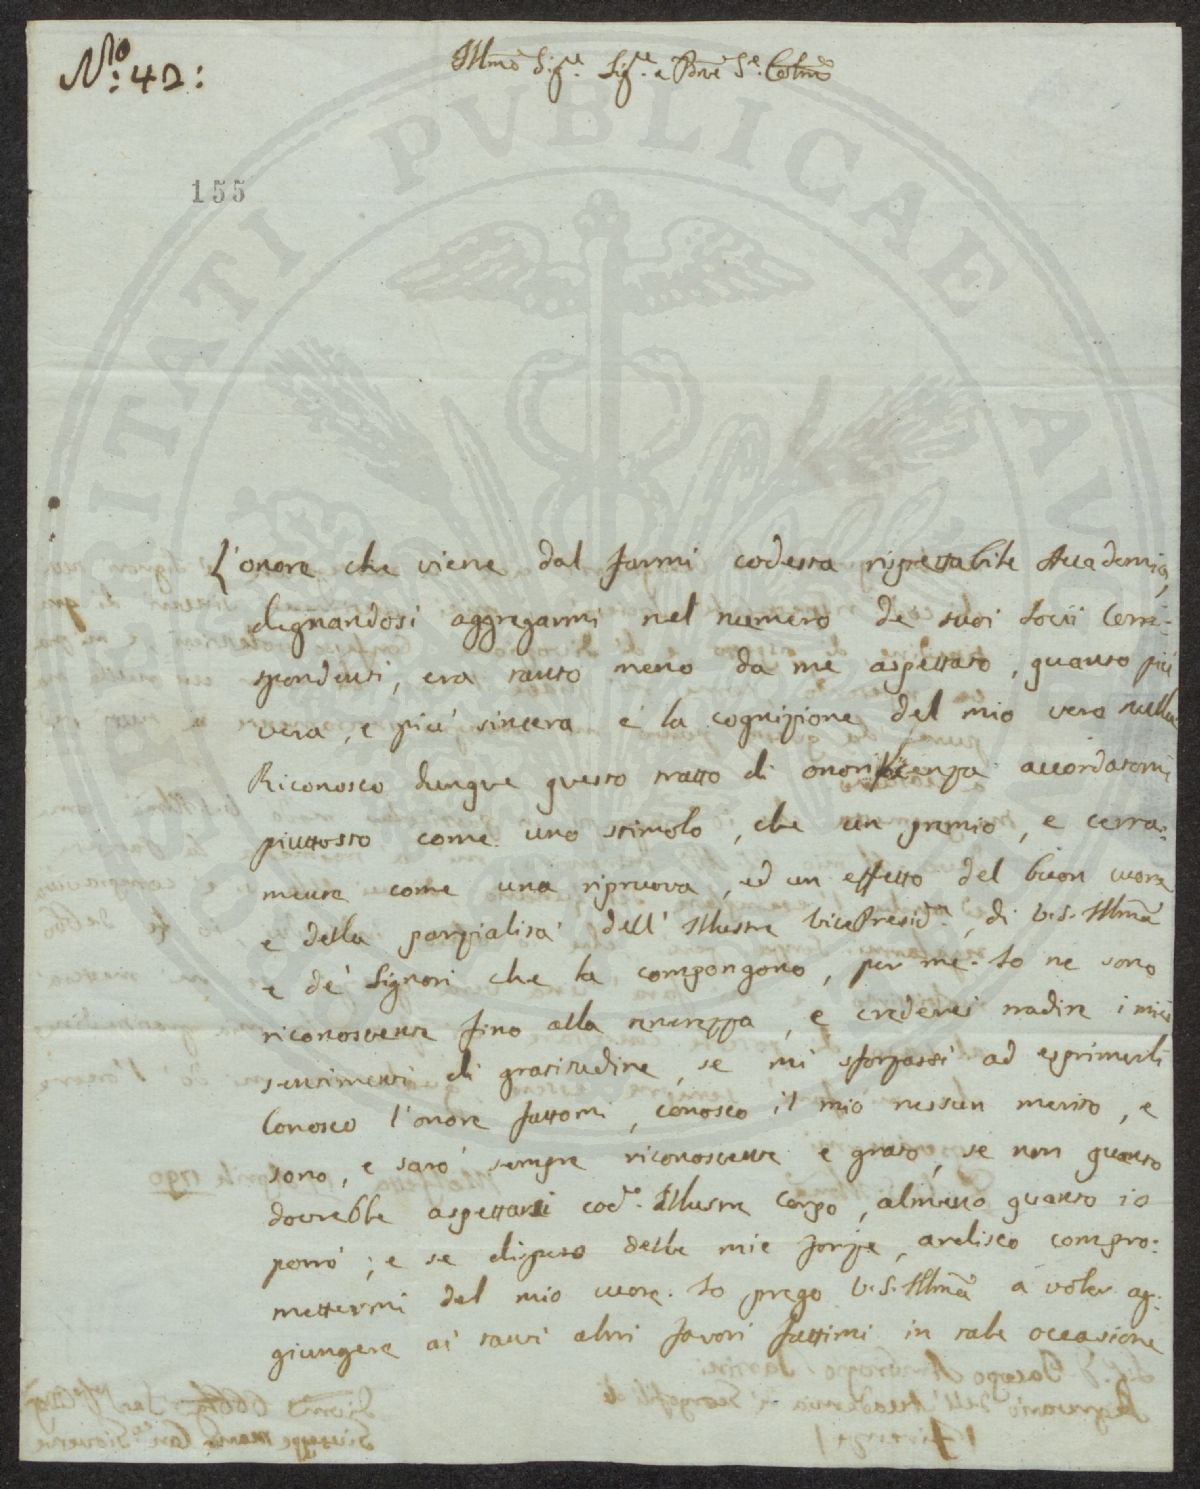 N.ro 42:
Illmo Sig.re Sig.re e Pne Se. Colmo
155
PROSPERITATI PUBLICAE AUGENDAE
L'onore che viene dal farmi codesta rispettabile Accademia,
degnandosi aggregarmi nel numero de suoi Socii Corri-
spondenti, era tanto meno da me aspettato, quanto più
vera, e più sincera è la cognizione del mio vero nulla.
Riconosco dunque questo tratto di onorificenza accordatomi
piuttosto come uno stimolo, che un premio, e certa-
mente come una ripruova, ed un effetto del buon cuore
e della parzialità dell' Illustre VicePresid.e, di V. S. Illma
e de' Signori che la compongono, per me. Io ne sono
riconoscente fino alla tenerezza, e crederei tradire i miei
sentimenti di gratitudine, se mi sforzassi ad esprimerli
Conosco l'onore fattomi, conosco il mio nessun merito, e
sono, e sarò sempre riconoscente e grato, se non quanto
dovrebbe aspettarsi cod.o Illustre Corpo, almeno quanto io
potrò; e se disputo delle mie forze, ardisco compro-
mettermi del mio cuore. Io prego V. S. Illma a voler ag-
giungere ai tanti altri favori fattimi in tale occasione